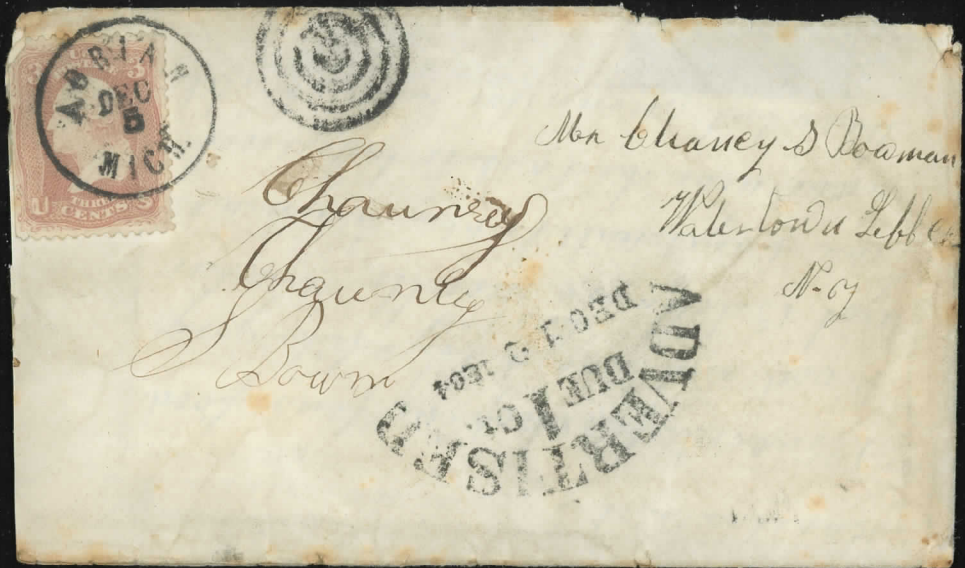 ADRIAN
DEC
5
MICH.
U
THREE
CENTS
S
Mr Chaney S Bowman
Watertown Jeff Co
N. y
Chauncey
Chauncy
S Bowm
ADVERTISED
DEC 1 1864
DUE 1 Ct.